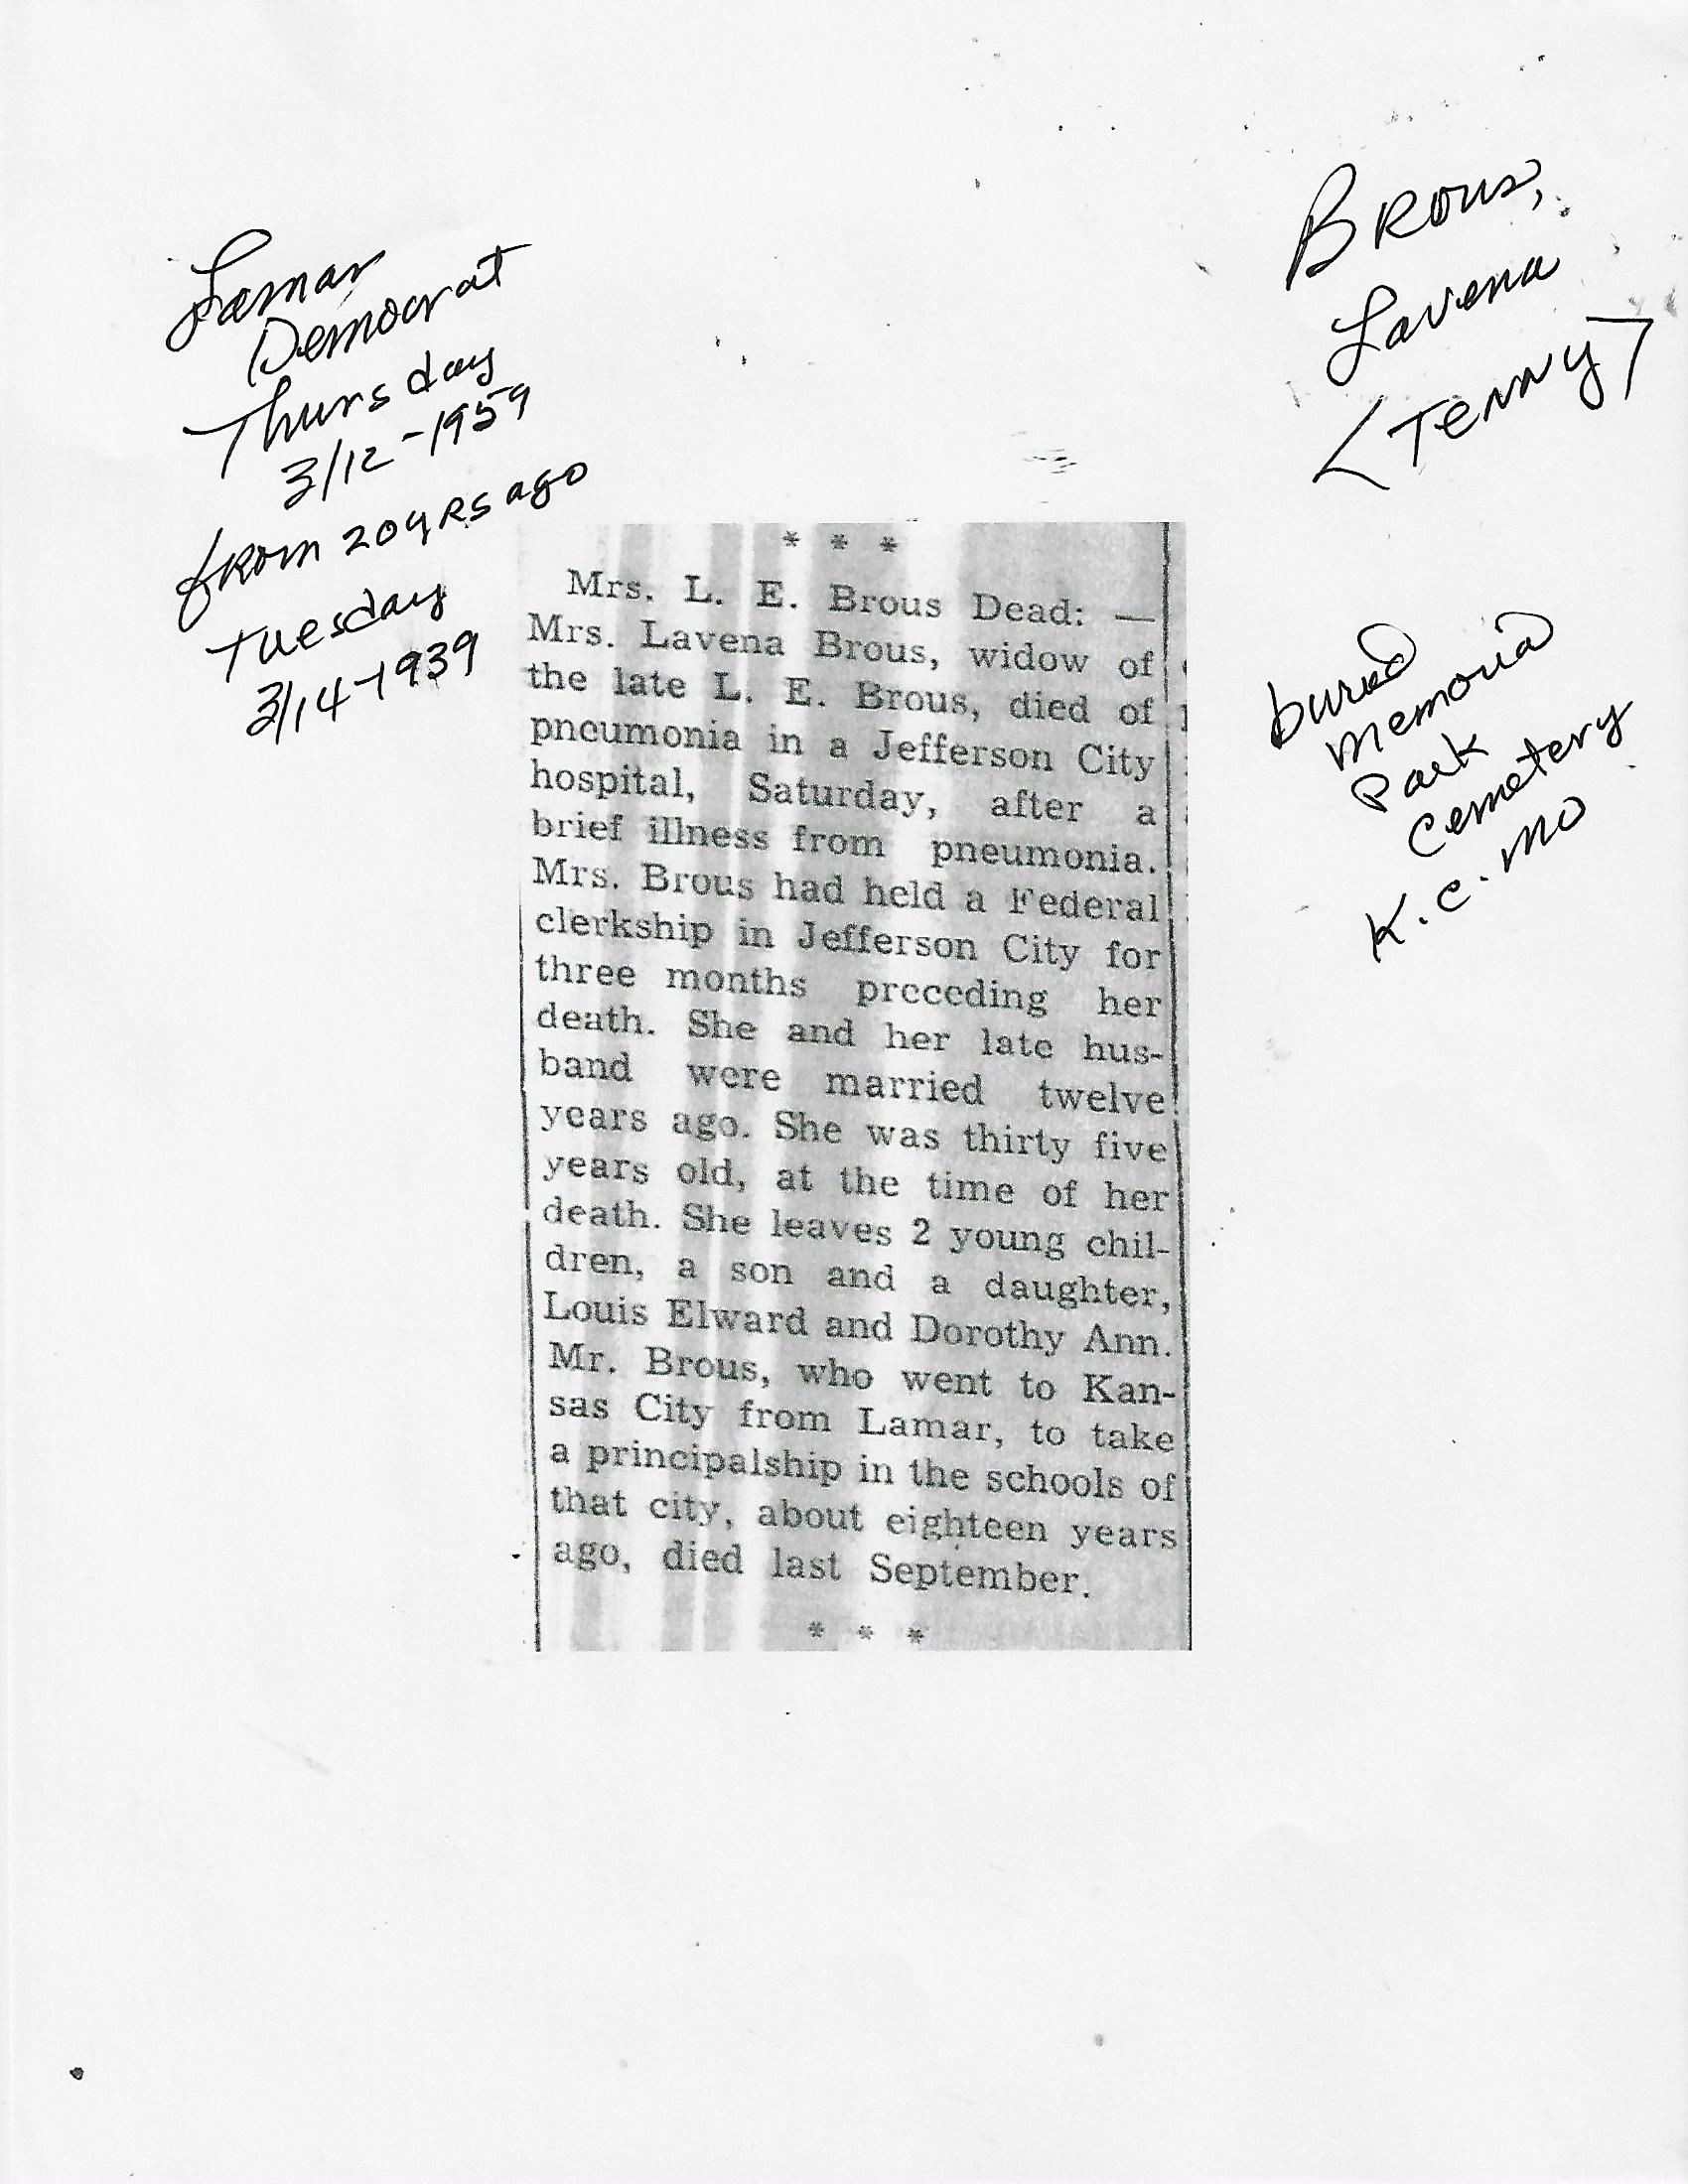 Lamar
Democrat
Thursday
3/12-1959
from 20 yRs ago
Tuesday
3/14-1939
BRous,
Lavena
<Tenny>
buried
Memorial
Park
Cemetery
K.C. MO
* * *
Mrs. L. E. Brous Dead: —
Mrs. Lavena Brous, widow of
the late L. E. Brous, died of
pneumonia in a Jefferson City
hospital, Saturday, after a
brief illness from pneumonia.
Mrs. Brous had held a Federal
clerkship in Jefferson City for
three months preceding her
death. She and her late hus-
band were married twelve
years ago. She was thirty five
years old, at the time of her
death. She leaves 2 young chil-
dren, a son and a daughter,
Louis Elward and Dorothy Ann.
Mr. Brous, who went to Kan-
sas City from Lamar, to take
a principalship in the schools of
that city, about eighteen years
ago, died last September.
* * *